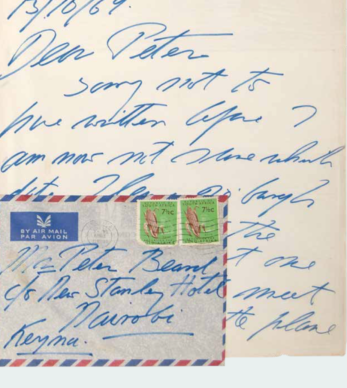 13/10/69.
Dear Peter
sorry not to
have written before I
am now not sure which
the
BY AIR MAIL
PAR AVION
7½c 7½c
not one
Mr Peter Beard
c/o New Stanley Hotel
meet
Nairobi
the plane
Keyna.